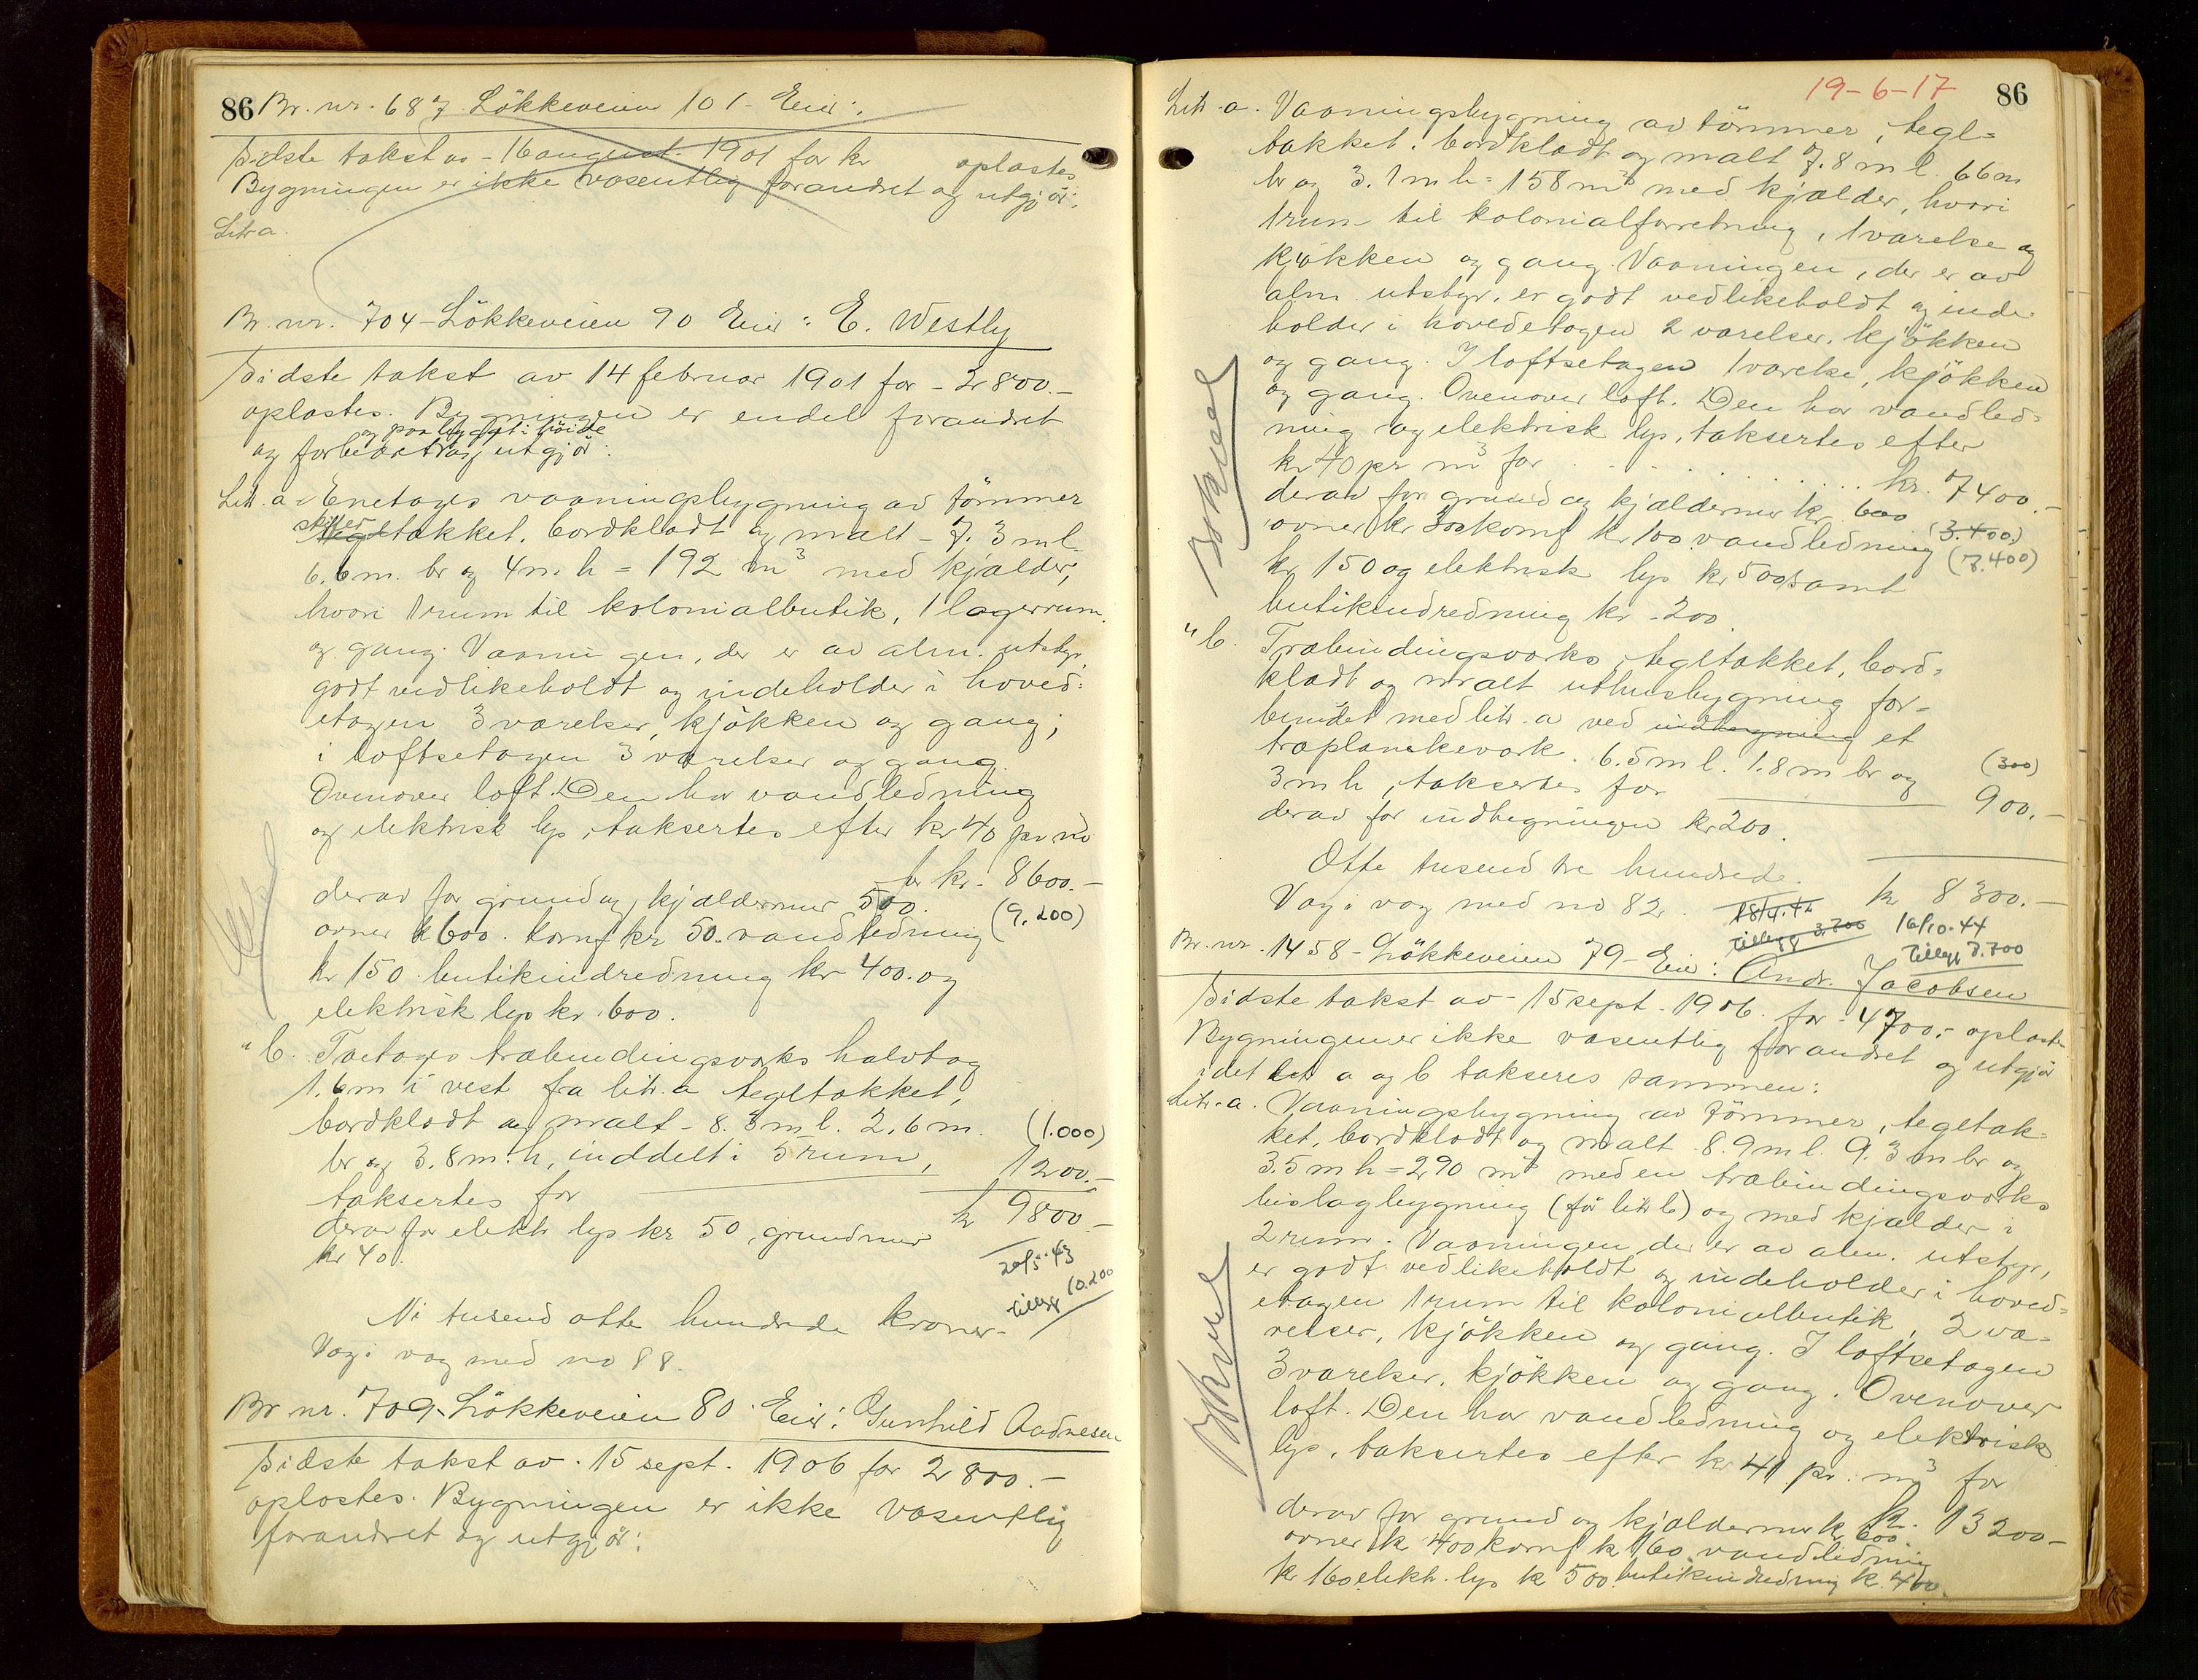 86 Br. nr. 687 Lökkeveien 101 - Eier:
Sidste takst av - 16 august 1901 for kr oplæstes
Bygningen er ikke væsentlig forandret og utgjör:
Litr a.
Br. nr. 704 - Lökkeveien 90 Eier: E. Westby
Sidste takst av 14 februar 1901 for - 2800.-
oplæstes. Bygningen er endel forandret
og paabygget i höide
og forbedret og utgjör:
Litr. a - Enetages vaaningsbygning av tömmer
skifertækket, bordklædt og malt - 7.3 m l.
6.6 m. br og 4 m. h = 192 m3 med kjælder,
hvori 1 rum til kolonialbutik, 1 lagerrum
og gang. Vaaningen, der er av alm. utstyr,
godt vedlikeholdt og indeholder i hoved=
etagen 3 værelser, kjökken og gang;
i loftsetagen 3 værelser og gang.
Ovenover loft. Den har vandledning
og elektrisk lys, taksertes efter kr 40 pr m3
for kr. 8600.-
derav for grund og kjældermur 500. (9.200)
ovner k 600. komf kr 50. vandledning
kr 150 butikindredning kr 400. og
elektrisk lys kr 600.
" b. Toetages træbindingsværks halvtag
1.6 m i vest fra litr. a tegltækket,
bordklædt og malt - 8.3 m l. 2.6 m. (1.000)
br og 3.8 m. h, inddelt i 5 rum,
taksertes for 1200.-
kr 9800.-
derav for elektr lys kr 50, grundmur
kr 40.
20/5-43
Tillegg 10.200
Ni tusend otte hundrede kroner.
Væg i væg med no 88.
Br nr. 709 - Lökkeveien 80. Eier: Gunhild Aadnesen
Sidste takst av. 15 sept. 1906 for 2800.-
oplæstes. Bygningen er ikke væsentlig
forandret og utgjör:
19-6-17 86
Litr. a. Vaaningsbygning av tömmer, tegl=
tækket, bordklædt og malt 7.8 m l. 6.6 m
br og 3.1 m h = 158 m3 med kjælder, hvori
1 rum til kolonialforretning, 1 værelse og
kjökken og gang. Vaaningen, der er av
alm utstyr, er godt vedlikeholdt og inde-
holder i hovedetagen 2 værelser, kjökken
og gang. I loftsetagen 1 værelse, kjökken
og gang. Ovenover loft. Den har vandled=
ning og elektrisk lys, taksertes efter
kr 40 pr m3 for . . . . . . . kr. 7400.-
derav for grund og kjældermur kr. 600 (3.400)
ovner kr 300 komf kr 100 vandledning (7.400)
kr 150 og elektrisk lys kr 500 samt
butikindredning kr. 200.
" b. Træbindingsværks, tegltækket, bord=
klædt og malt uthusbygning for=
bundet med litr. a ved indhegning et
træplankeværk. 6.5 m l. 1.8 m br og (300)
3 m h, taksertes for 900.-
derav for indhegningen kr 200.
Otte tusend tre hundrede.
kr 8300.-
Væg i væg med no 82. 18/4.42 16/10.44
Tillegg 3.800 Tillegg 7.700
Br. nr. 1458 - Lökkeveien 79 - Eier: Andr. Jacobsen
Sidste takst av - 15 sept. 1906. for - 4700.- oplæstes
Bygningen er ikke væsentlig forandret og utgjör
idet litr a og b takseres sammen:
Litr. a. Vaaningsbygning av tömmer, tegltæk=
ket, bordklædt og malt 8.9 m l. 9.3 m br og
3.5 m h = 290 m3 med en træbindingsværks
bislagbygning (för litr b) og med kjælder i
2 rum. Vaaningen, der er av alm. utstyr,
er godt vedlikeholdt og indeholder i hoved=
etagen 1 rum til kolonialbutik, 2 væ=
relser, kjökken og gang. I loftsetagen
3 værelser, kjökken og gang. Ovenover
loft. Den har vandledning og elektrisk
lys, taksertes efter kr 41 pr. m3 for
kr. 13200-
derav for grund og kjældermur kr 600.
ovner kr 400 komf k 160 vandledning
kr 160 elektr. lys k 500 butikindredning k. 400.